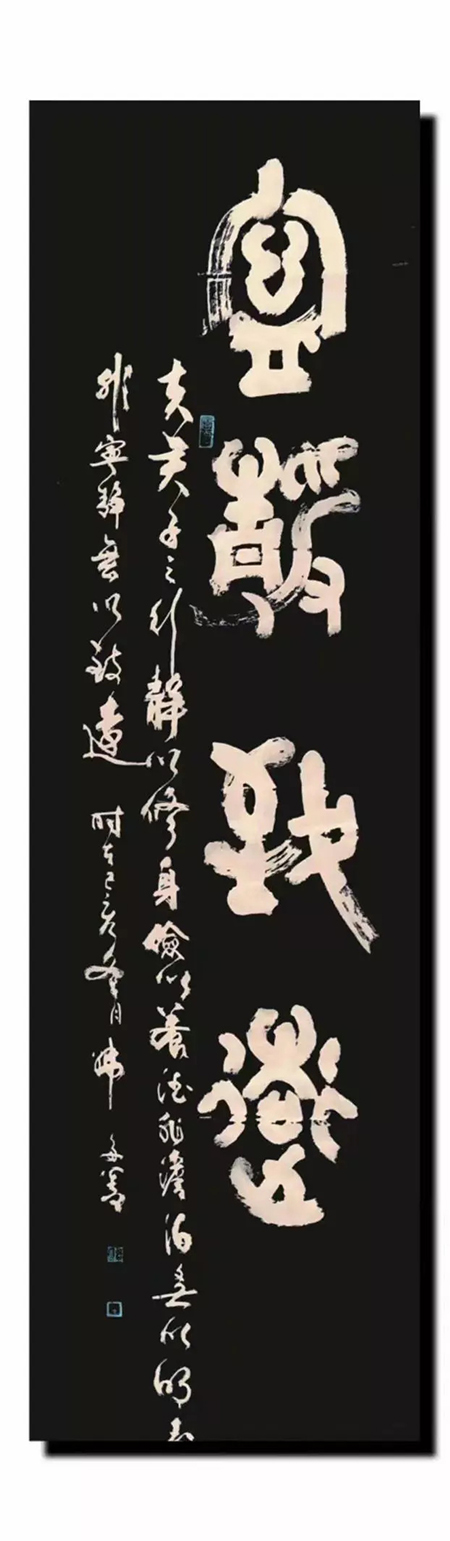 寧靜致遠
夫君子之行靜以修身儉以養德非澹泊無以明志
非寧靜無以致遠 时在己亥冬月